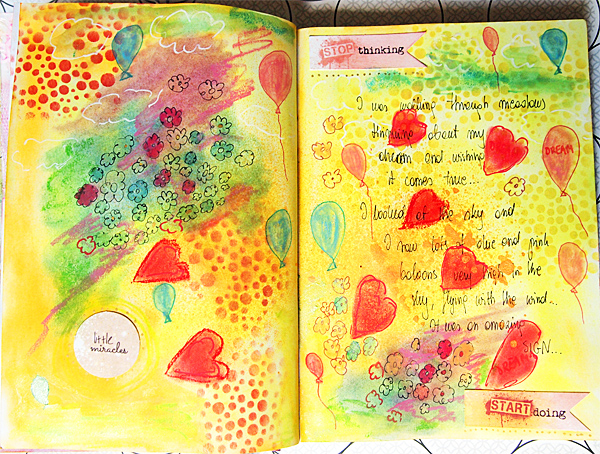 little
miracles
STOP thinking
I was walking through meadows
about my
dream and wishing
it comes true...
DREAM
I looked at the sky and
I saw lots of blue and pink
baloons very high in the
sky, flying with the wind...
It was an amazing
SIGN...
START doing